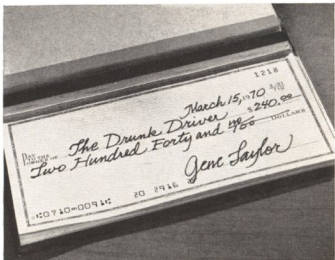 1218
March 15, 1970
PAY TO THE ORDER OF The Drunk Driver $240.00
Two Hundred Forty and no/100 DOLLARS
Gene Taylor
⑆0710⑉0091⑆ 20 2916